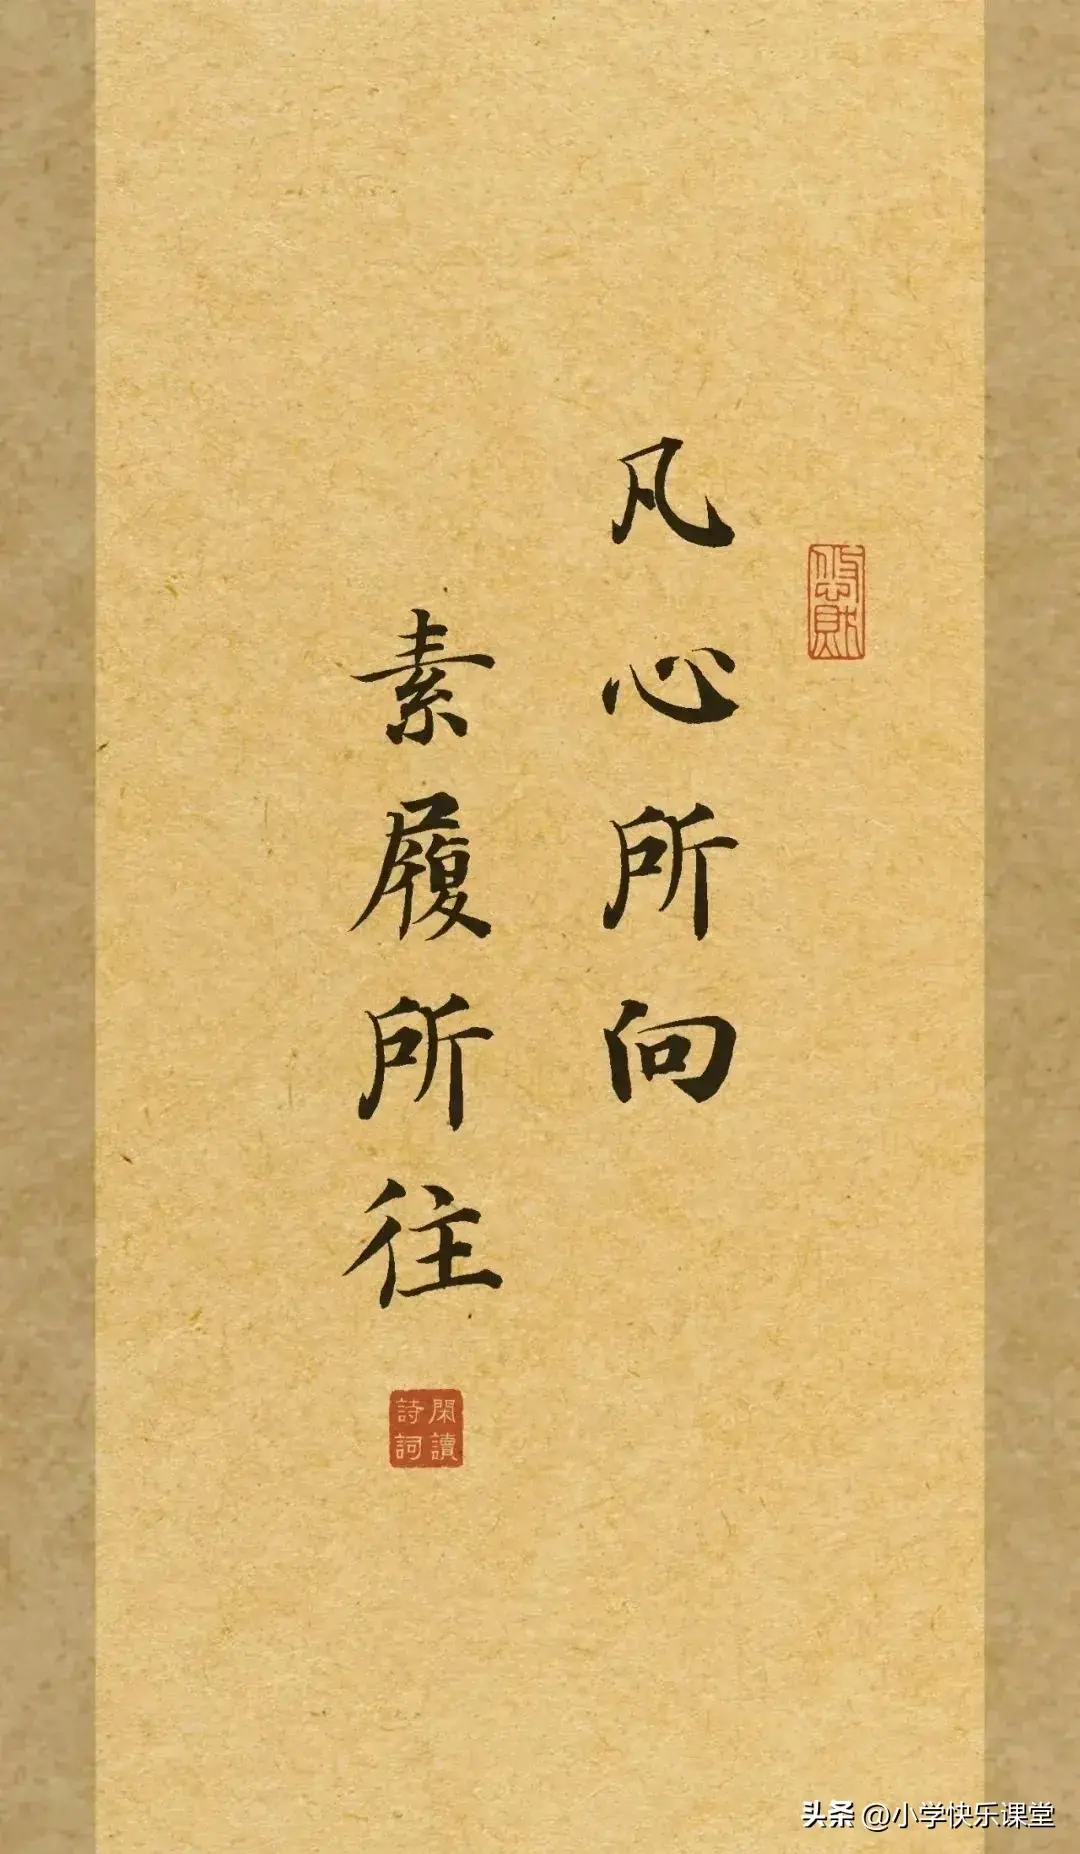 凡心所向
素履所往
閑讀
詩詞
头条 @小学快乐课堂